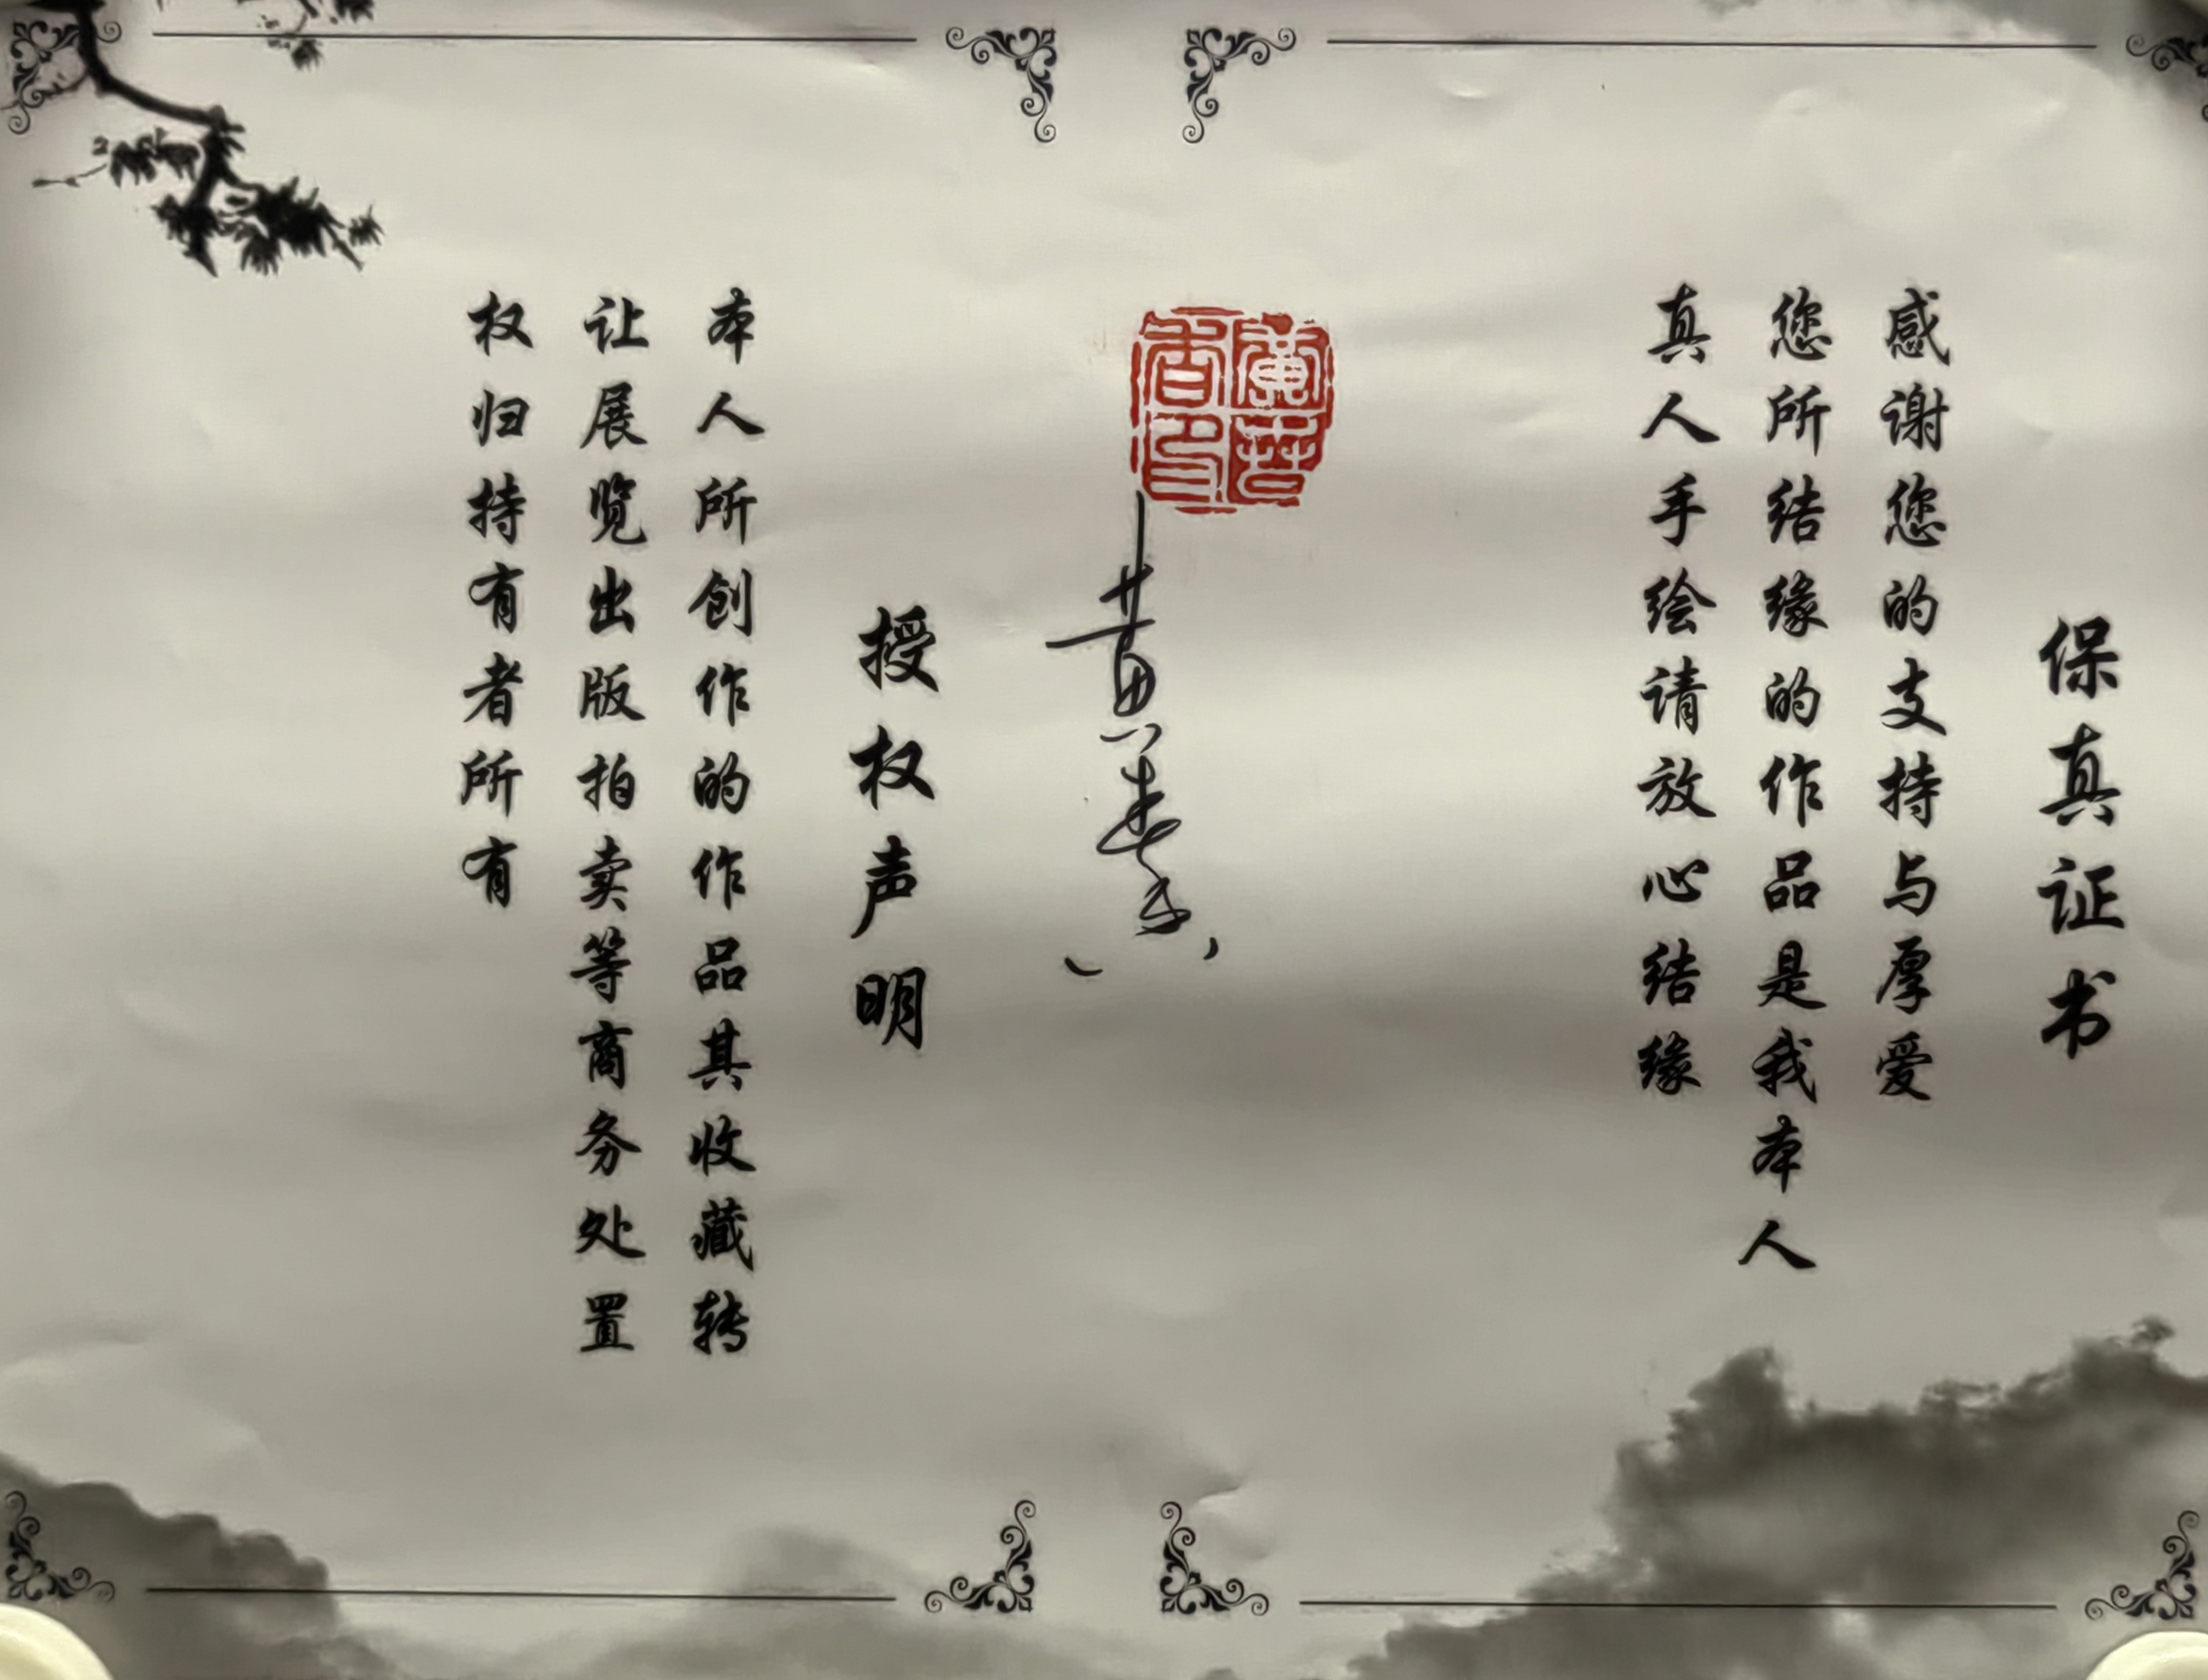 保真证书
感谢您的支持与厚爱
您所结缘的作品是我本人
真人手绘请放心结缘
授权声明
本人所创作的作品其收藏转
让展览出版拍卖等商务处置
权归持有者所有